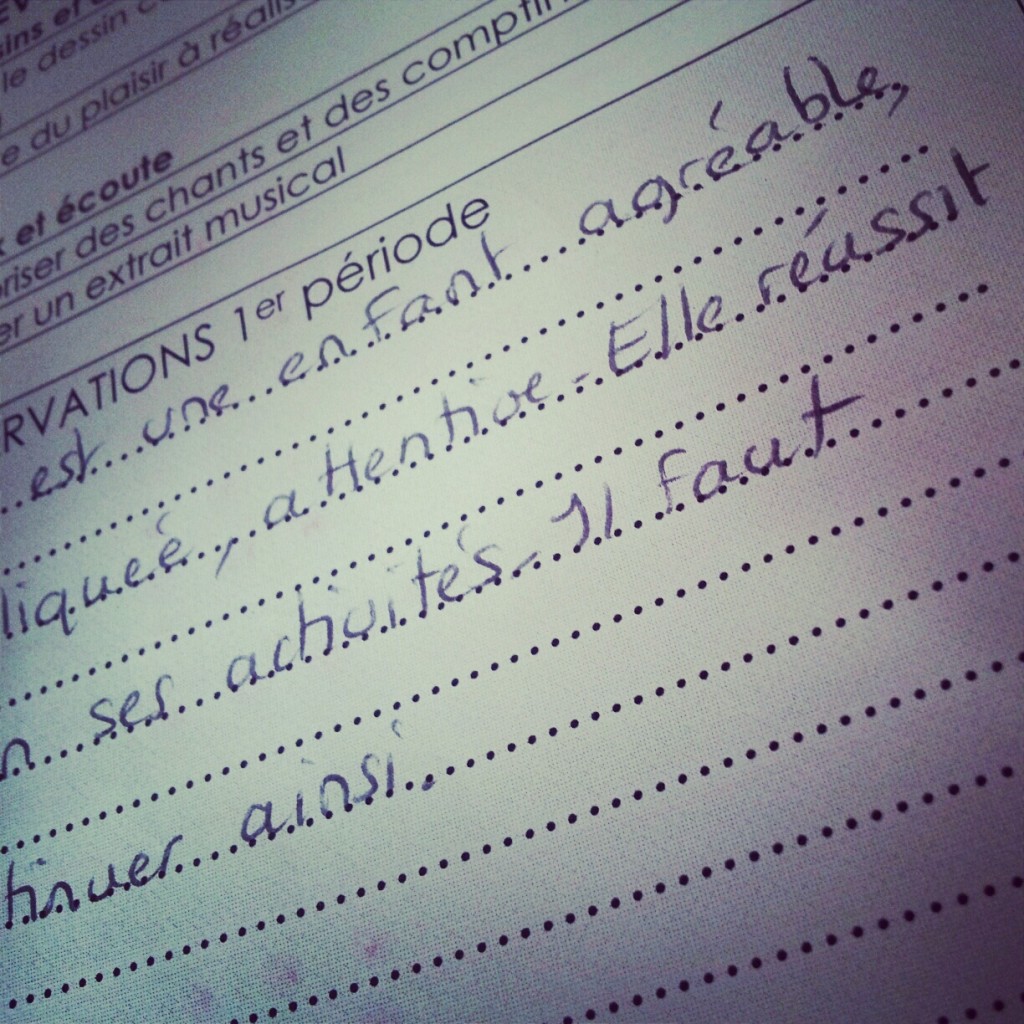 sins et
le dessin c
e du plaisir à réalis
et écoute
riser des chants et des comptin
er un extrait musical
RVATIONS 1er période
est une enfant agréable,
liquée, attentive. Elle réussit
n ses activités. Il faut
tinuer ainsi.